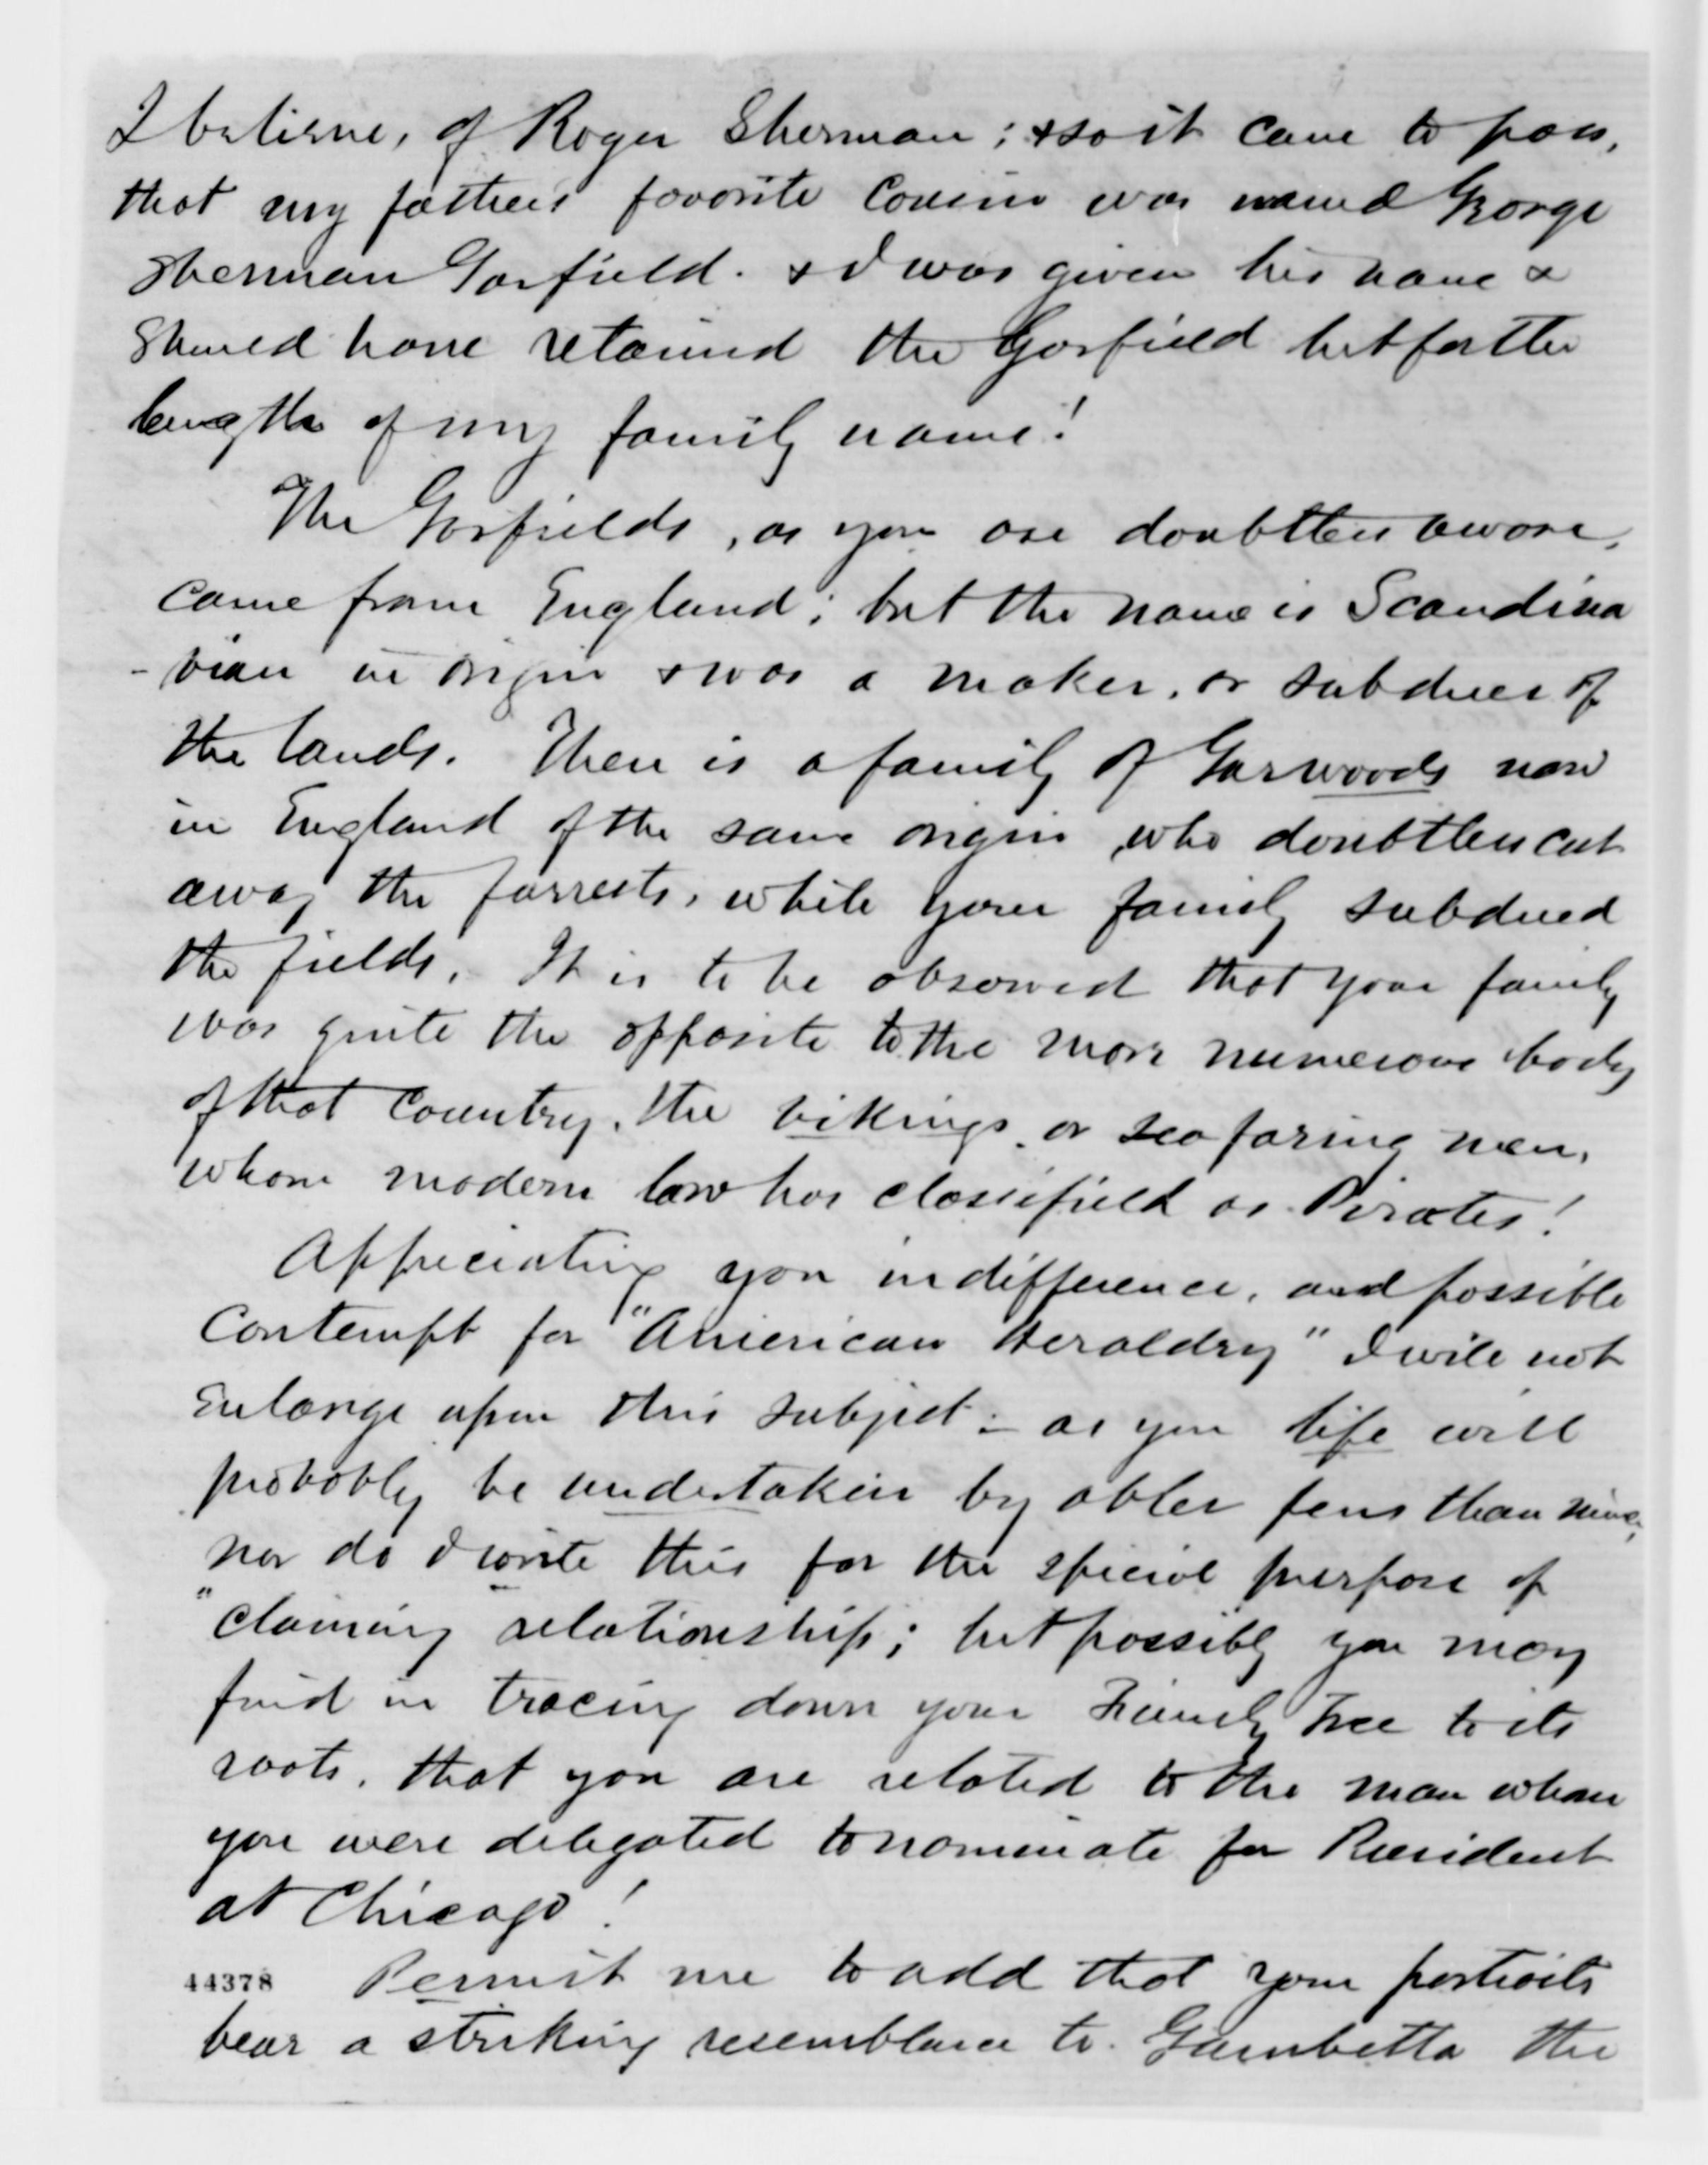 I believe, of Roger Sherman; & so it came to pass,
that my father's favorite cousin was named George
Sherman Garfield. & I was given his name &
Should have retained the Garfield but for the
length of my family name!
The Garfields, as you are doubtless aware,
came from England; but the name is Scandina
-vian in origin & was a maker, or subduer of
the lands. There is a family of Garwoods now
in England of the same origin, who doubtless cut
away the forrests, while your family subdued
the fields. It is to be observed that your family
was quite the opposite to the more numerous body
of that Country, the vikings, or sea faring men,
whom modern law has classifield as Pirates!
Appreciating your indifference, and possible
Contempt for "American Heraldry" I will not
Enlarge upon this subject:- as your life will
probably be undertaken by abler pens than mine;
nor do I write this for the special purpose of
"claiming relationship; but possibly you may
find in tracing down your Family Tree to its
roots, that you are related to the man whom
you were delegated to nominate for President
at Chicago!
44378 Permit me to add that your portraits
bear a striking resemblance to Gambetta the